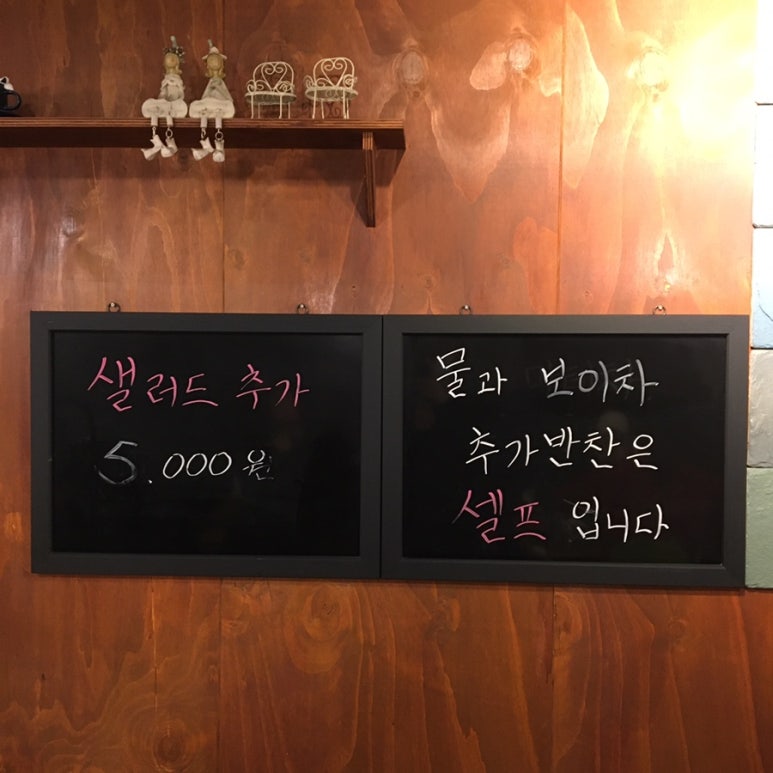 샐러드 추가
5.000원
물과 보이차
추가반찬은
셀프 입니다